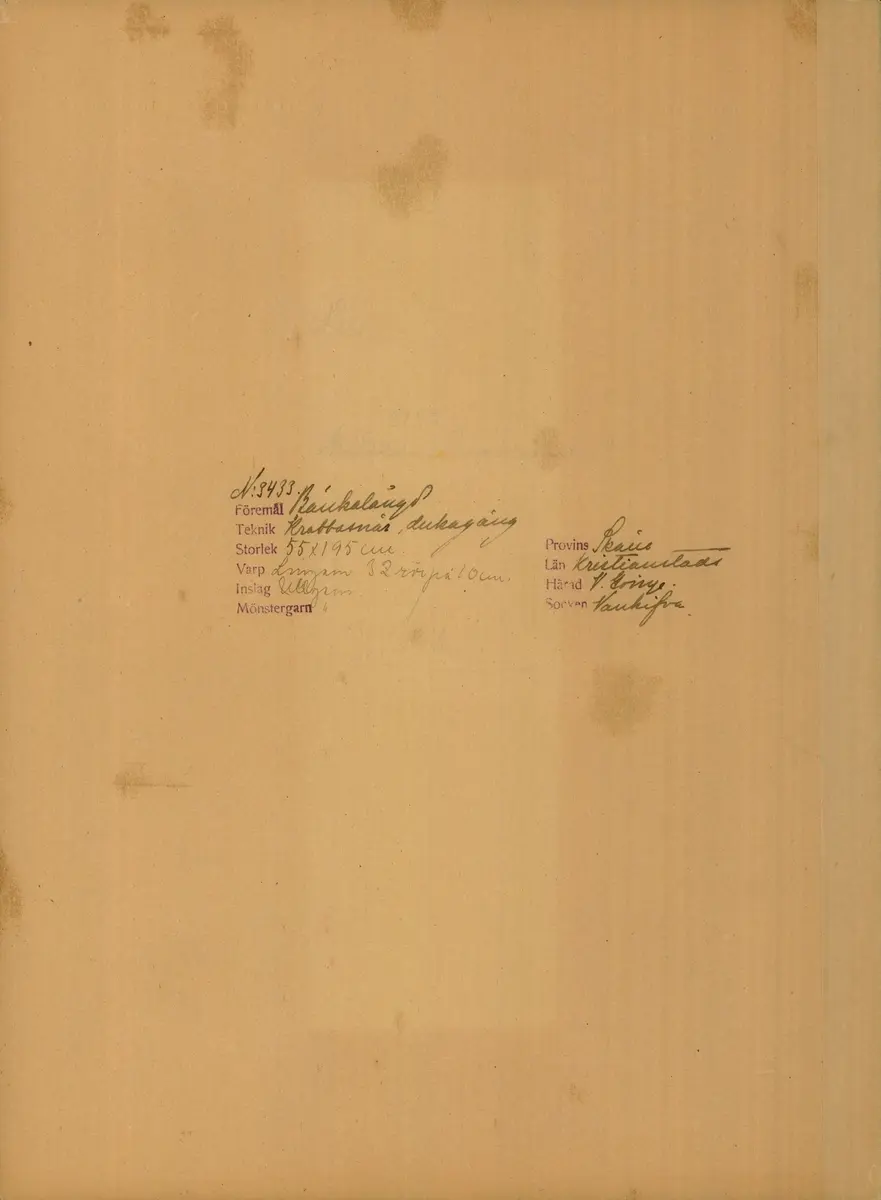 N: 3433.
Föremål Bänkalängd
Teknik Krabbasnår, dukagång
Storlek 55 x 195 cm.
Varp Lingarn 32 rör på 10 cm.
Inslag Ullgarn.
Mönstergarn "
Provins Skåne
Län Kristianstads
Härad V. Göinge.
Socken Vankifva.